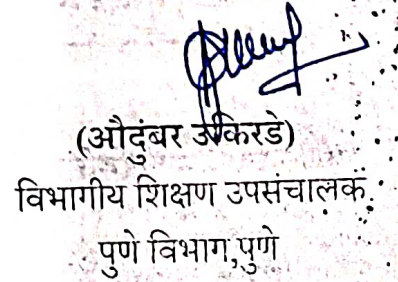 (औदुंबर उकिरडे)
विभागीय शिक्षण उपसंचालक,
पुणे विभाग,पुणे